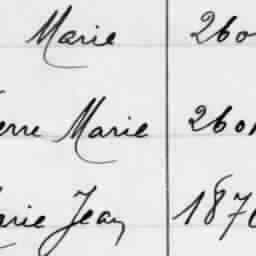 Marie 260
erre Marie 260
arie Jean 1876